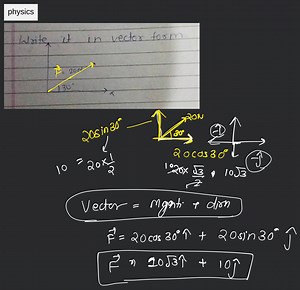 physics
Write it in vector form
30°
x
20sin30°
20N
30°
20cos30°
10 = 20 × 1/2
20 × √3/2 = 10√3
Vector = Mgnti + dirn
F⃗ = 20cos30° î + 20sin30° ĵ
F⃗ = 10√3 î + 10 ĵ